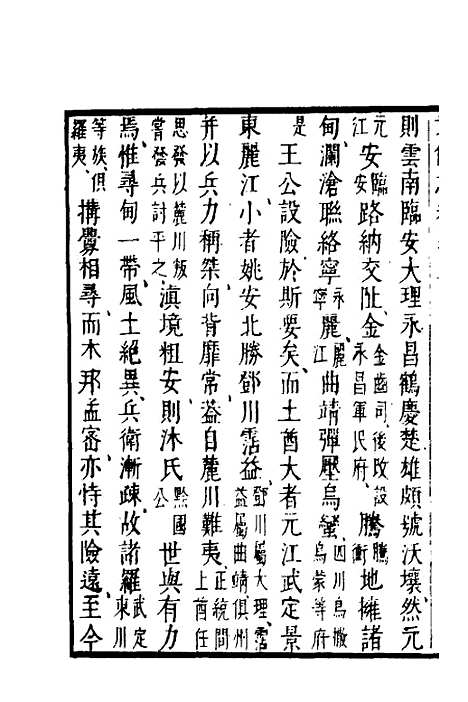 則雲南臨安大理永昌鶴慶楚雄頗號沃壤然元
江元江安臨安路納交阯金金齒司後改設永昌軍民府騰騰衝地擁諸
甸瀾滄聯絡寧永寧麗麗江曲靖彈壓烏蠻四川烏撒烏蒙等府
是王公設險於斯要矣而土酋大者元江武定景
東麗江小者姚安北勝鄧川霑益鄧川屬大理霑益屬曲靖俱州
并以兵力稱桀向背靡常益自麓川難夷正統間上酋任
思發以麓川叛嘗發兵討平之滇境粗安則沐氏黔國公世與有力
焉惟尋甸一帶風土絕異兵衛漸疎故諸羅武定東川
等族俱羅夷搆釁相尋而木邦孟密亦恃其險遠至今